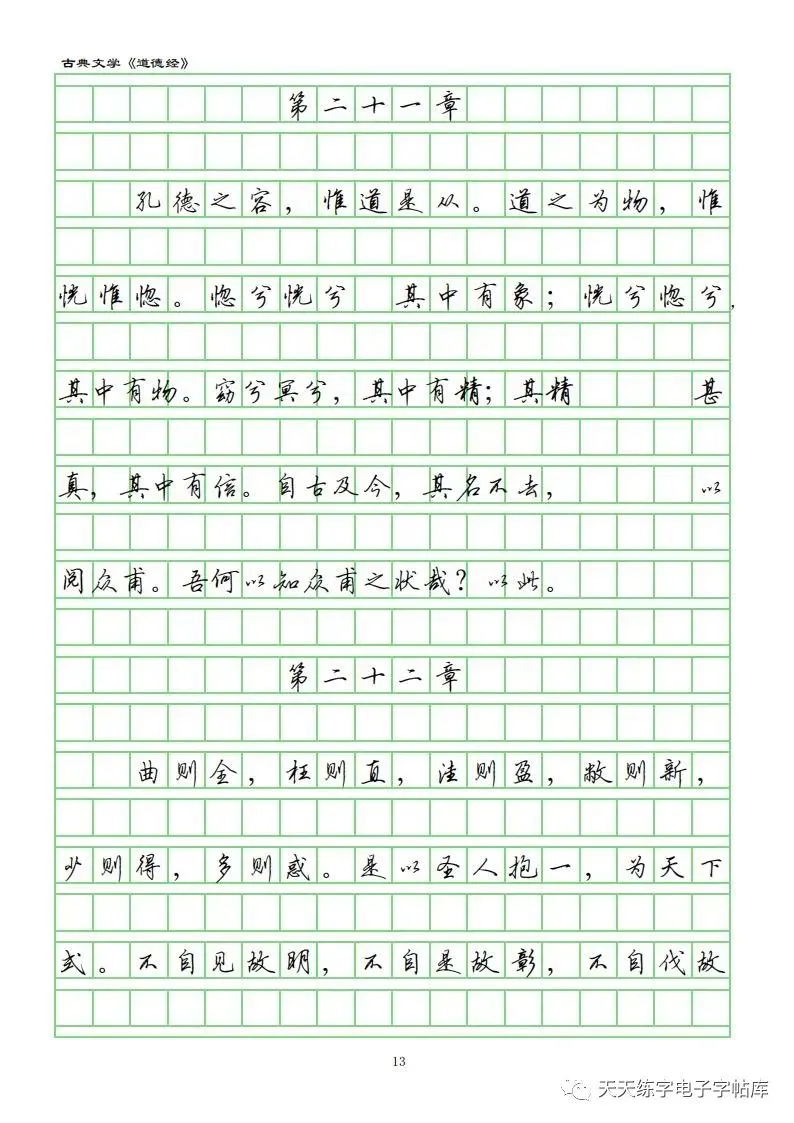 古典文学《道德经》
第二十一章
孔德之容，惟道是从。道之为物，惟
恍惟惚。惚兮恍兮　其中有象；恍兮惚兮，
其中有物。窈兮冥兮，其中有精；其精　　　甚
真，其中有信。自古及今，其名不去，　　　　以
阅众甫。吾何以知众甫之状哉？以此。
第二十二章
曲则全，枉则直，洼则盈，敝则新，
少则得，多则惑。是以圣人抱一，为天下
式。不自见故明，不自是故彰，不自伐故
13
天天练字电子字帖库